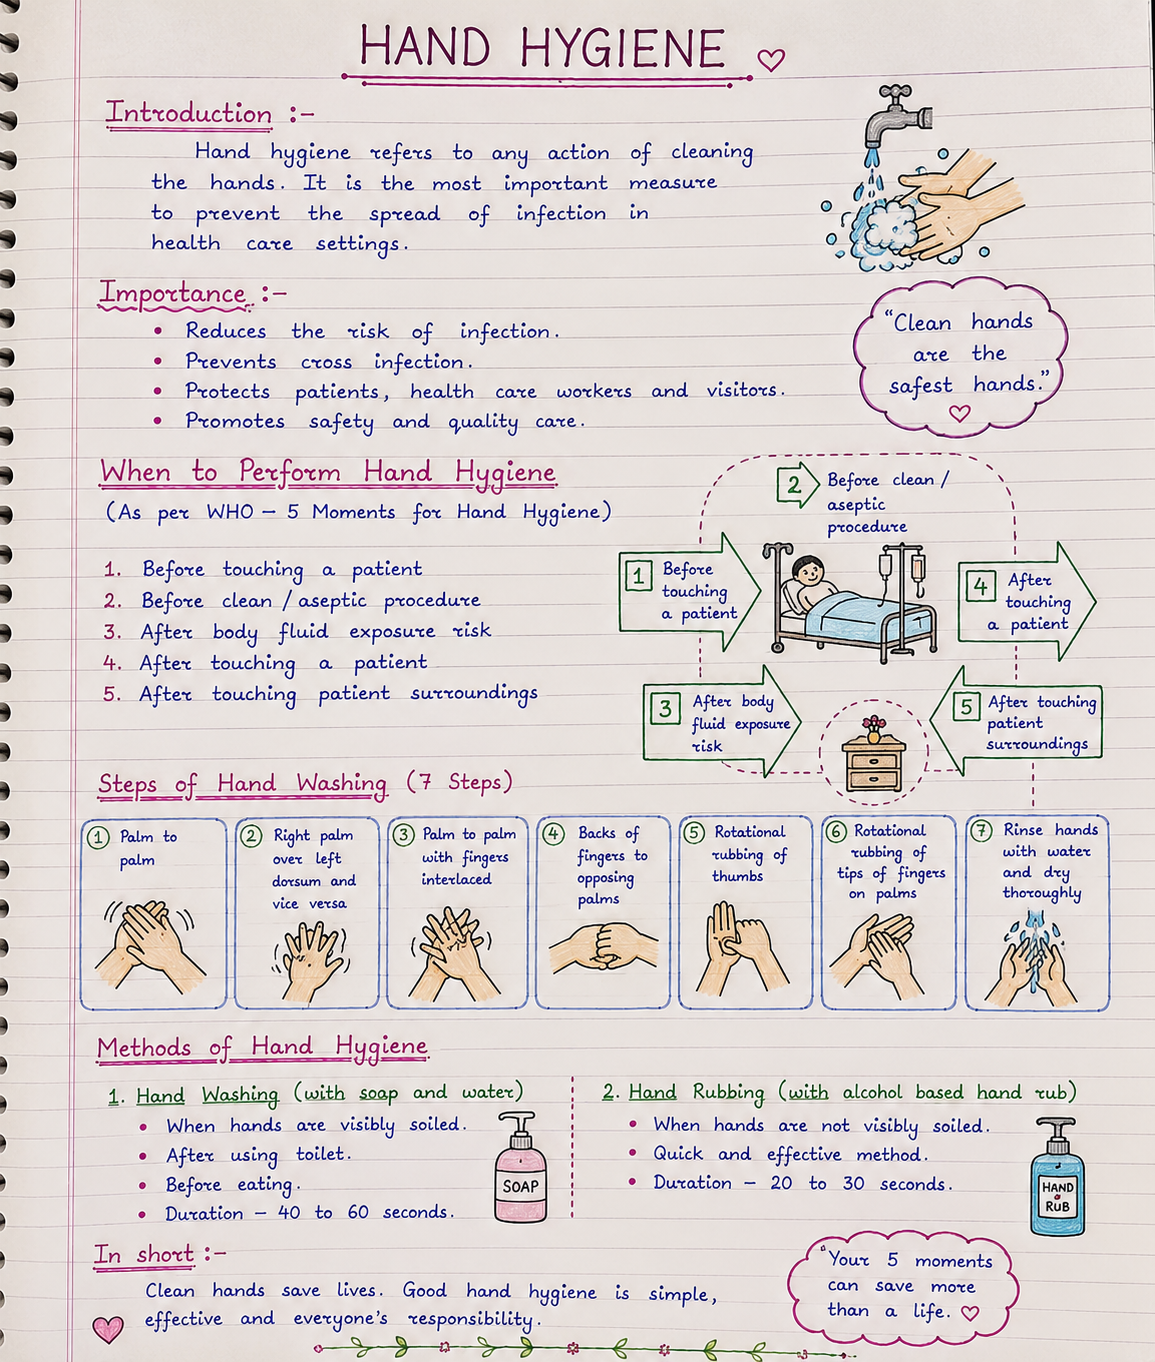 HAND HYGIENE
Introduction :-
Hand hygiene refers to any action of cleaning
the hands. It is the most important measure
to prevent the spread of infection in
health care settings.
Importance :-
• Reduces the risk of infection.
• Prevents cross infection.
• Protects patients, health care workers and visitors.
• Promotes safety and quality care.
"Clean hands
are the
safest hands."
When to Perform Hand Hygiene
(As per WHO – 5 Moments for Hand Hygiene)
1. Before touching a patient
2. Before clean / aseptic procedure
3. After body fluid exposure risk
4. After touching a patient
5. After touching patient surroundings
1 Before
touching
a patient
2 Before clean /
aseptic
procedure
3 After body
fluid exposure
risk
4 After
touching
a patient
5 After touching
patient
surroundings
Steps of Hand Washing (7 Steps)
1 Palm to
palm
2 Right palm
over left
dorsum and
vice versa
3 Palm to palm
with fingers
interlaced
4 Backs of
fingers to
opposing
palms
5 Rotational
rubbing of
thumbs
6 Rotational
rubbing of
tips of fingers
on palms
7 Rinse hands
with water
and dry
thoroughly
Methods of Hand Hygiene
1. Hand Washing (with soap and water)
• When hands are visibly soiled.
• After using toilet.
• Before eating.
• Duration – 40 to 60 seconds.
SOAP
2. Hand Rubbing (with alcohol based hand rub)
• When hands are not visibly soiled.
• Quick and effective method.
• Duration – 20 to 30 seconds.
HAND
RUB
In short :-
Clean hands save lives. Good hand hygiene is simple,
effective and everyone's responsibility.
"Your 5 moments
can save more
than a life.